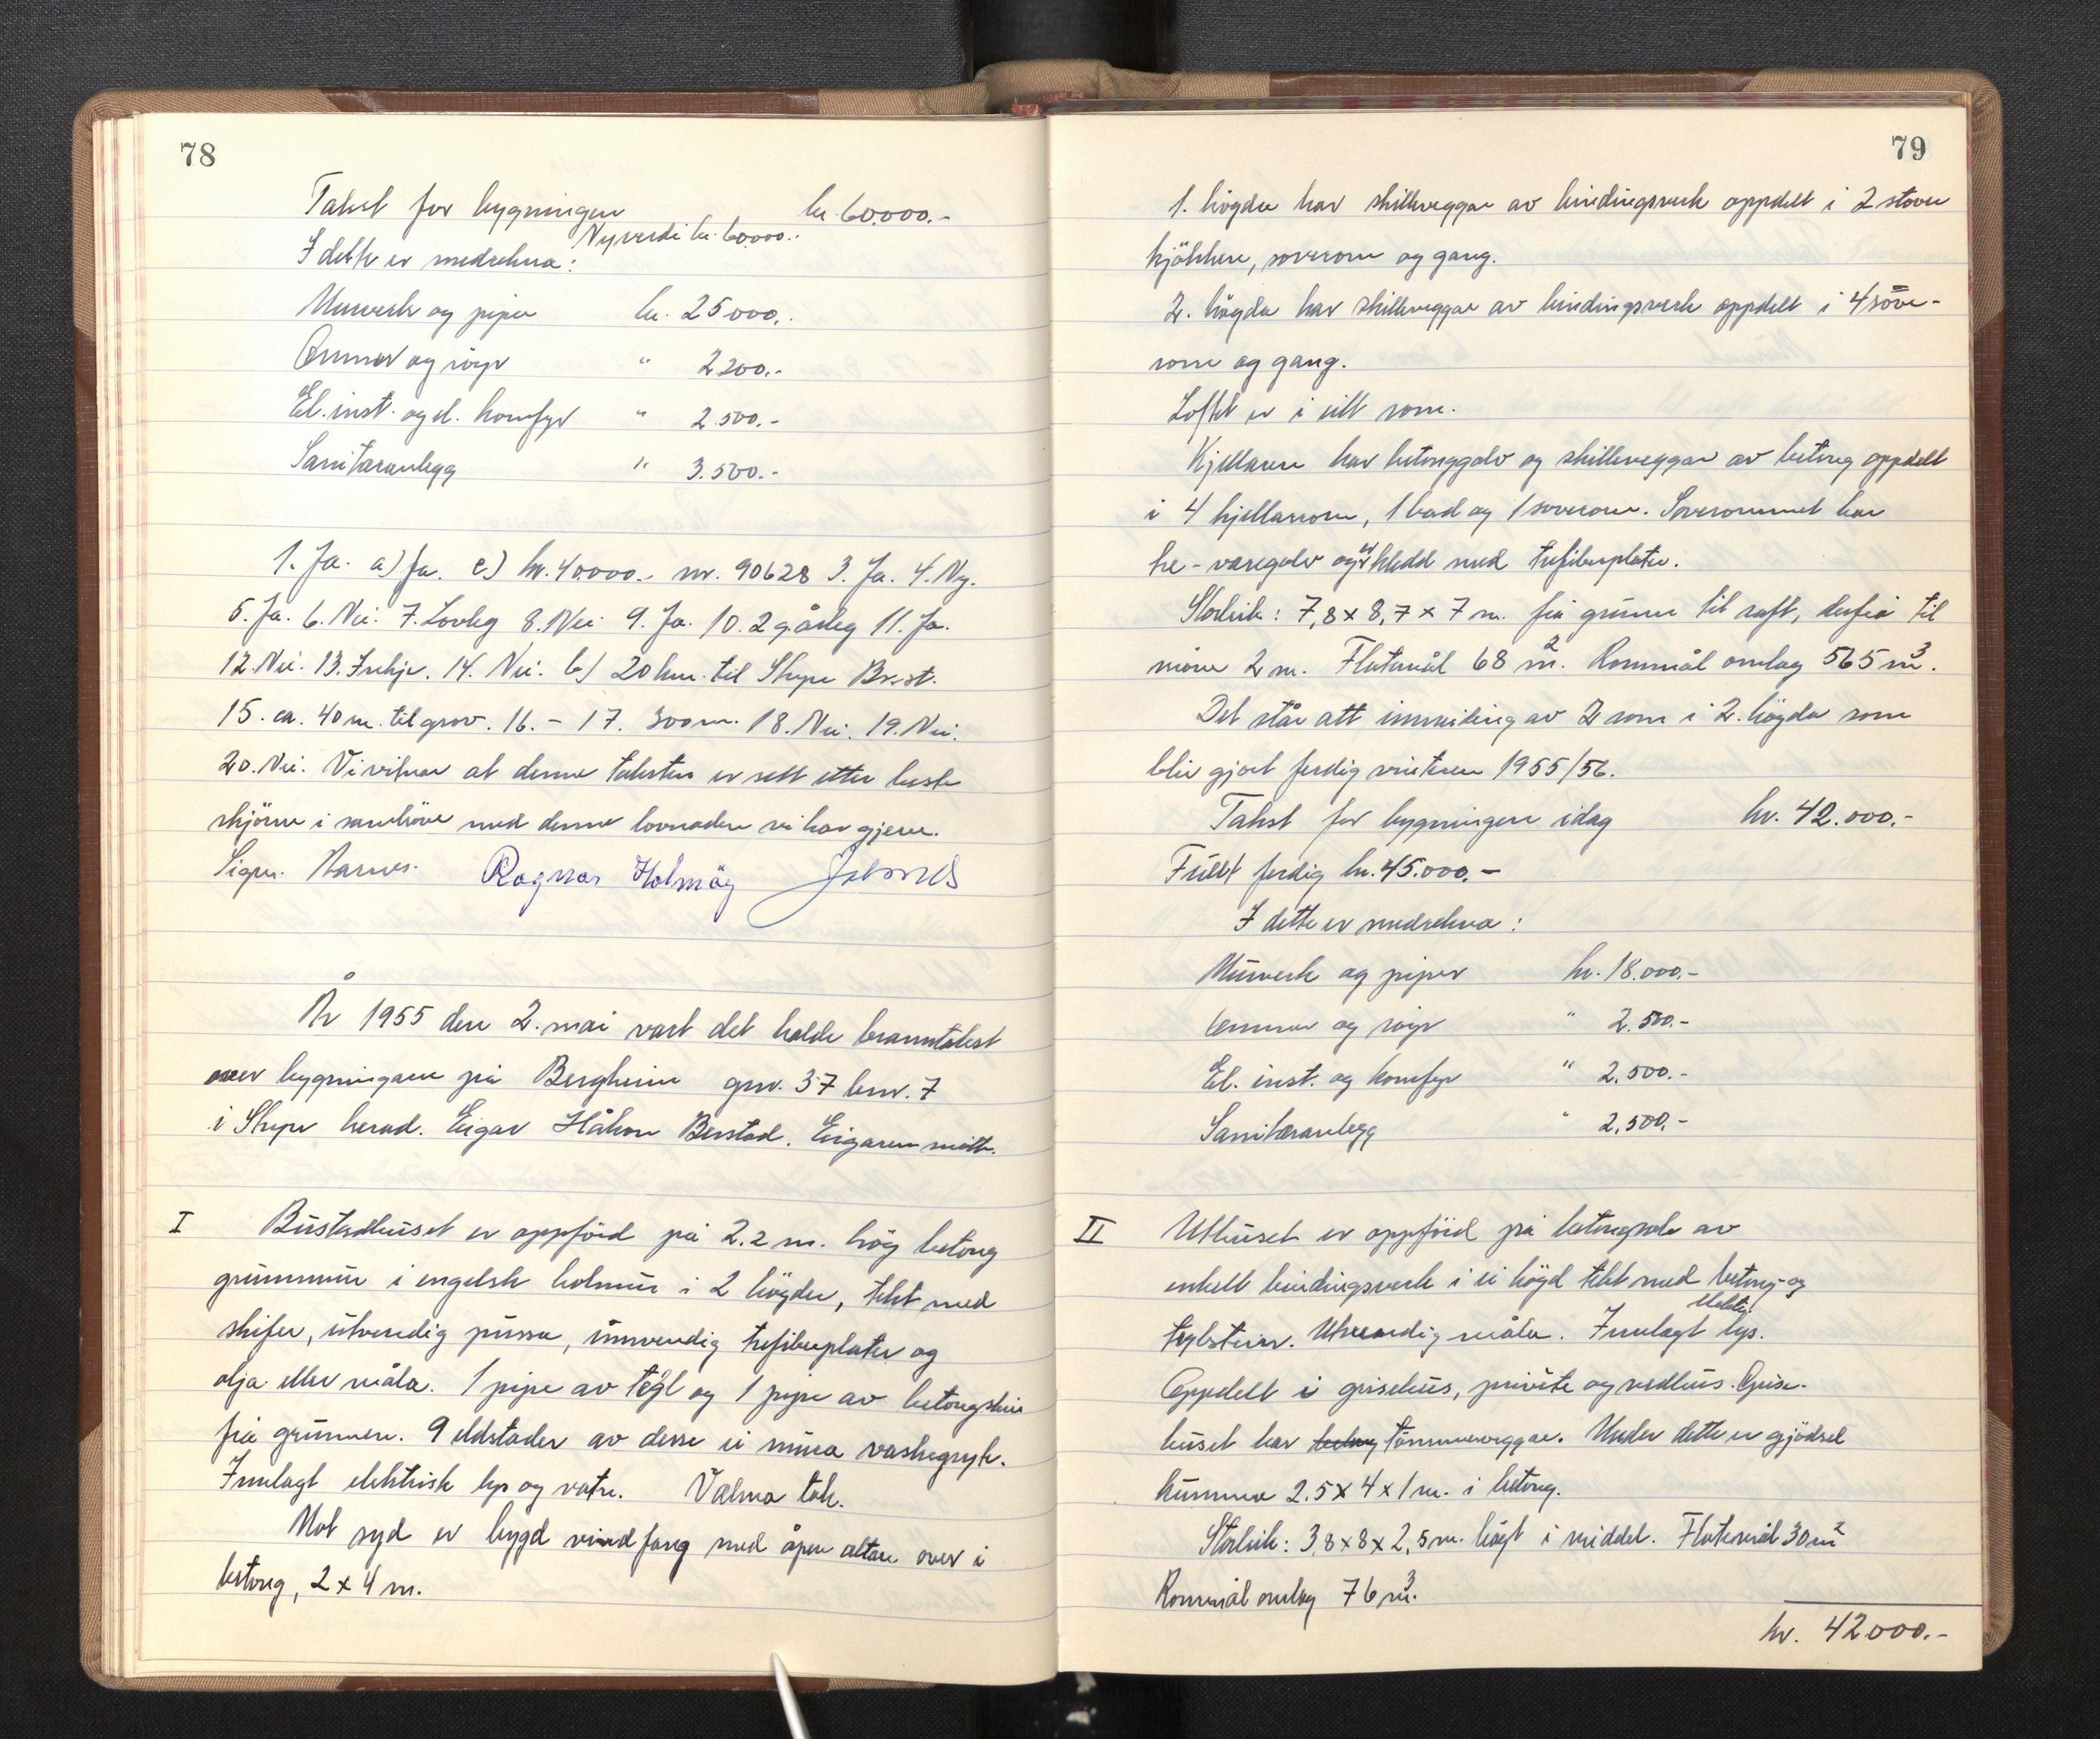 78
Takst for bygningen kr. 60000.-
Nyverdi kr. 60000.-
I dette er medrekna:
Murverk og piper kr. 25000.-
Omnar og røyr " 2200.-
El. inst. og el. komfyr " 2.500.-
Sanitæranlegg " 3.500.-
1. Ja. a) Ja. c) kr. 40000.- nr. 90628 3. Ja. 4. Ny.
5. Ja. 6. Nei. 7. Lovleg 8. Nei 9. Ja. 10. 2 gårleg 11. Ja.
12. Nei. 13. Innkjr. 14. Nei. b) 20 km. til Stryn Br.st.
15. ca. 40 m. til grov. 16. - 17. 300 m. 18. Nei. 19. Nei.
20. Nei. Vi vitnar at denne taksten er sett etter beste
skjönn i samhöve med denne lovnaden vi har gjeve.
Sigm. Ragnar Holmøy
År 1955 den 2. mai vart det halde branntakst
over bygningane på Bergheim gnr. 37 bnr. 7
i Stryn herad. Eigar Håkon Berstad. Eigaren møtte.
I Bustadhuset er oppförd på 2.2 m. høg betong
grunnmur i engelsk holmur i 2 högder, tekt med
skifer, utvendig pussa, innvendig trefiberplater og
olja eller måla. 1 pipe av tegl og 1 pipe av betongstein
frå grunnen. 9 eldstader av desse ei mura vaskegryte.
Innlagt elektrisk lys og vatn. Valma tak.
Mot syd er bygd vindfang med åpen altan over i
betong, 2 x 4 m.
79
1. högda har skilleveggar av bindingsverk oppdelt i 2 stover
kjökken, soverom og gang.
2. högda har skilleveggar av bindingsverk oppdelt i 4 sove-
rom og gang.
Loftet er i eitt rom.
Kjellaren har betonggolv og skilleveggar av betong oppdelt
i 4 kjellarrom, 1 bad og 1 soverom. Soverommet har
tre-varegolv og er kledd med trefiberplater.
Storleik: 7,8 x 8,7 x 7 m. frå grunn til raft, derfrå til
möne 2 m. Flatemål 68 m². Rommål omlag 565 m³.
Det står att innreiing av 2 rom i 2. högda som
blir gjort ferdig vinteren 1955/56.
Takst for bygningen idag kr. 42.000.-
Fullt ferdig kr. 45.000.-
I dette er medrekna:
Murverk og piper kr. 18.000.-
Omnar og røyr " 2.500.-
El. inst. og komfyr " 2.500.-
Sanitæranlegg " 2.500.-
II Uthuset er oppförd på betongsole av
enkelt bindingsverk i ei högd tekt med betong- og
teglstein. Utvendig måla. Innlagt elektr. lys.
Oppdelt i grisehus, privete og vedhus. Grise-
huset har betong tömmerveggar. Under dette er gjödsel
kumma 2.5 x 4 x 1 m. i betong.
Storleik: 3,8 x 8 x 2,5 m. høgt i middel. Flatemål 30 m²
Rommål omlag 76 m³.
kr. 42000.-